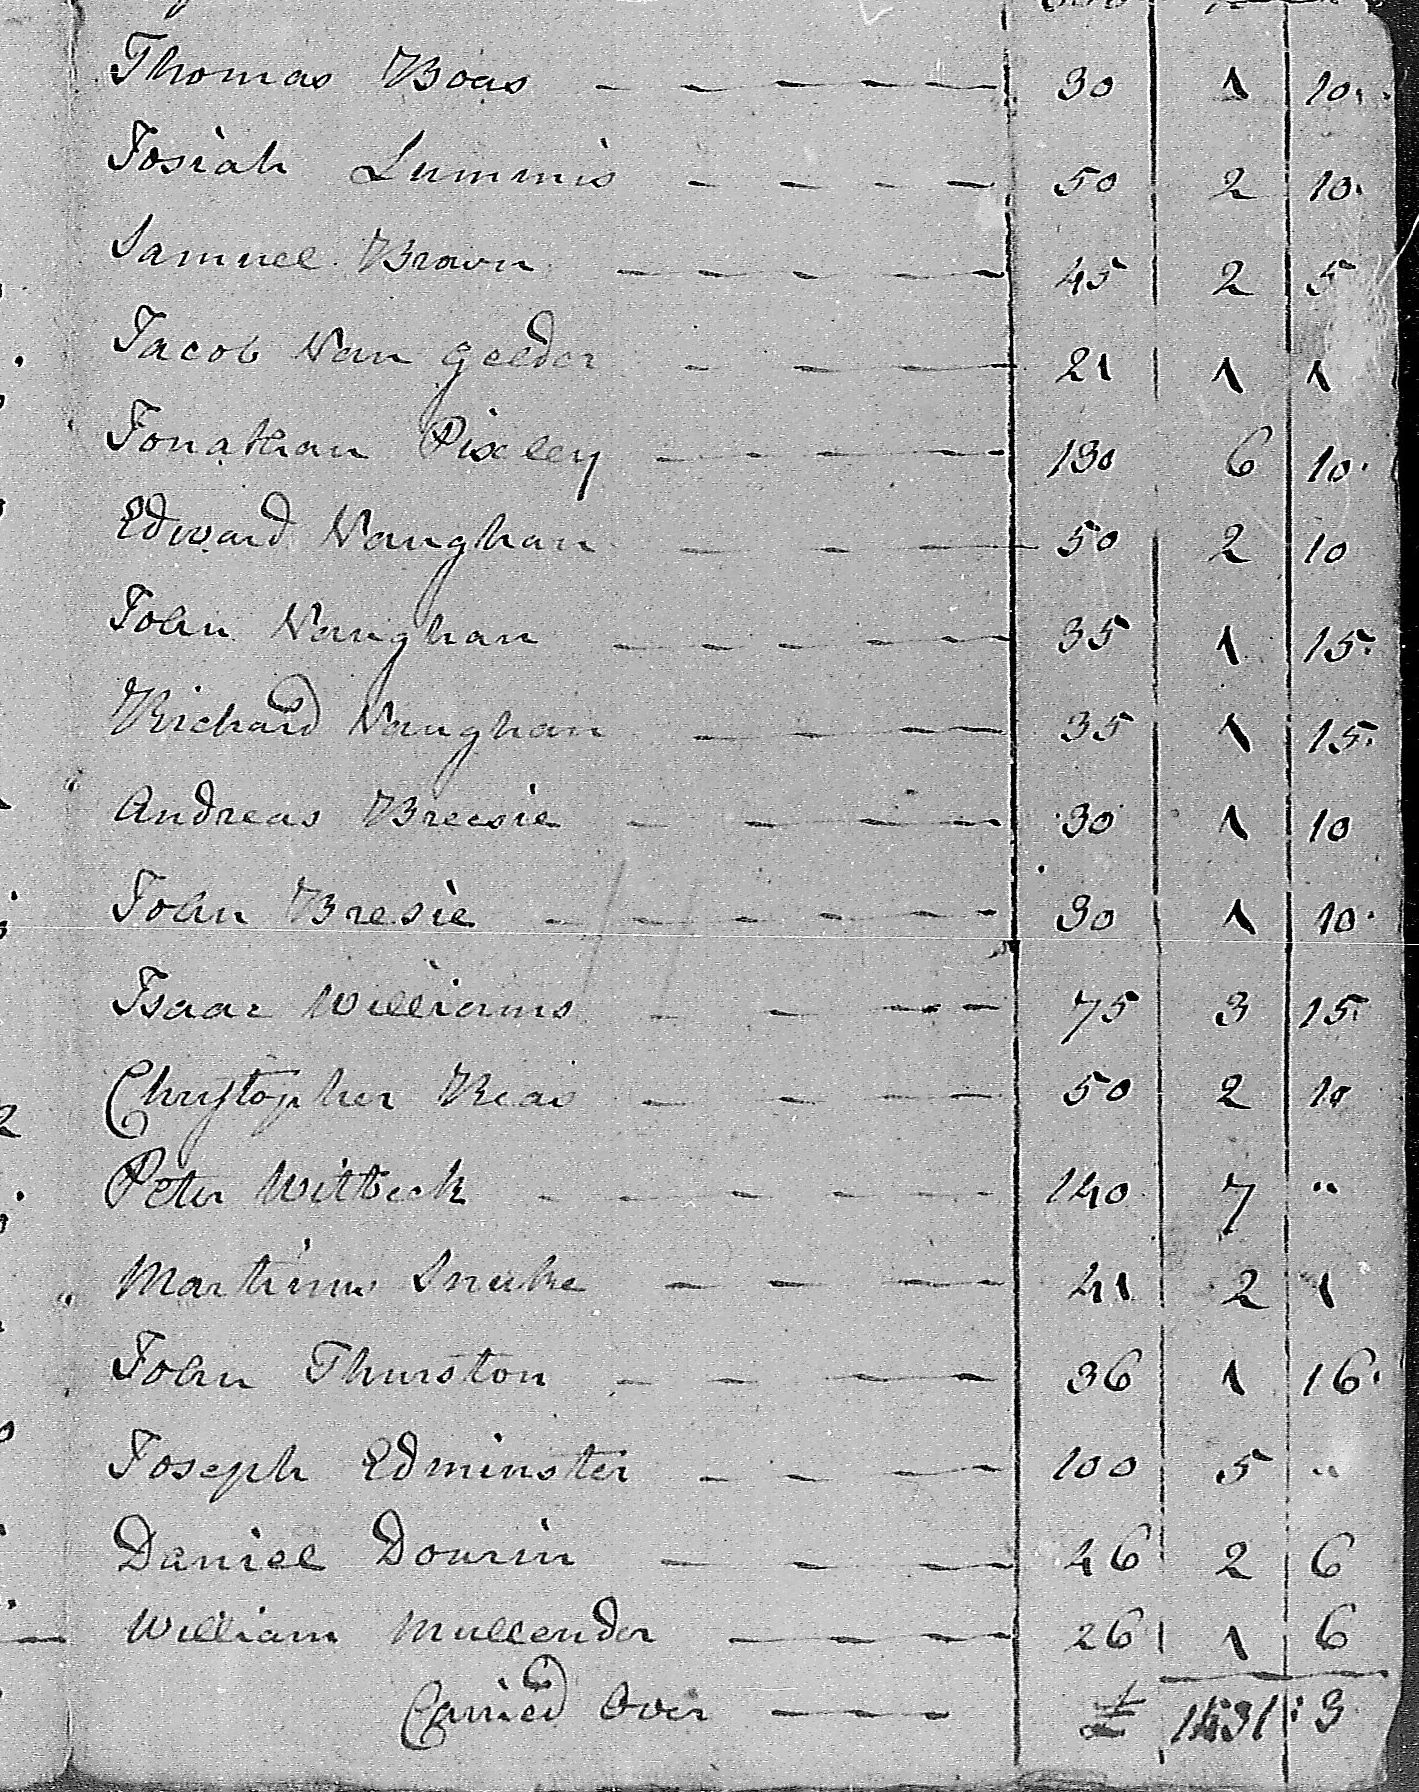 Thomas Boas 30 1 10
Josiah Lummis 50 2 10
Samuel Brown 45 2 5
Jacob Van gelder 21 1 1
Jonathan Pixley 130 6 10
Edward Vaughan 50 2 10
John Vaughan 35 1 15
Richard Vaughan 35 1 15
Andreas Breesie 30 1 10
John Bresie 30 1 10
Isaac Williams 75 3 15
Chrystopher Beas 50 2 10
Peter Witbeck 140 7 "
Martinus Snuke 41 2 1
John Thurston 36 1 16
Joseph Edminster 100 5 "
Daniel Dowrin 46 2 6
William Mullender 26 1 6
Carried Over £ : 3